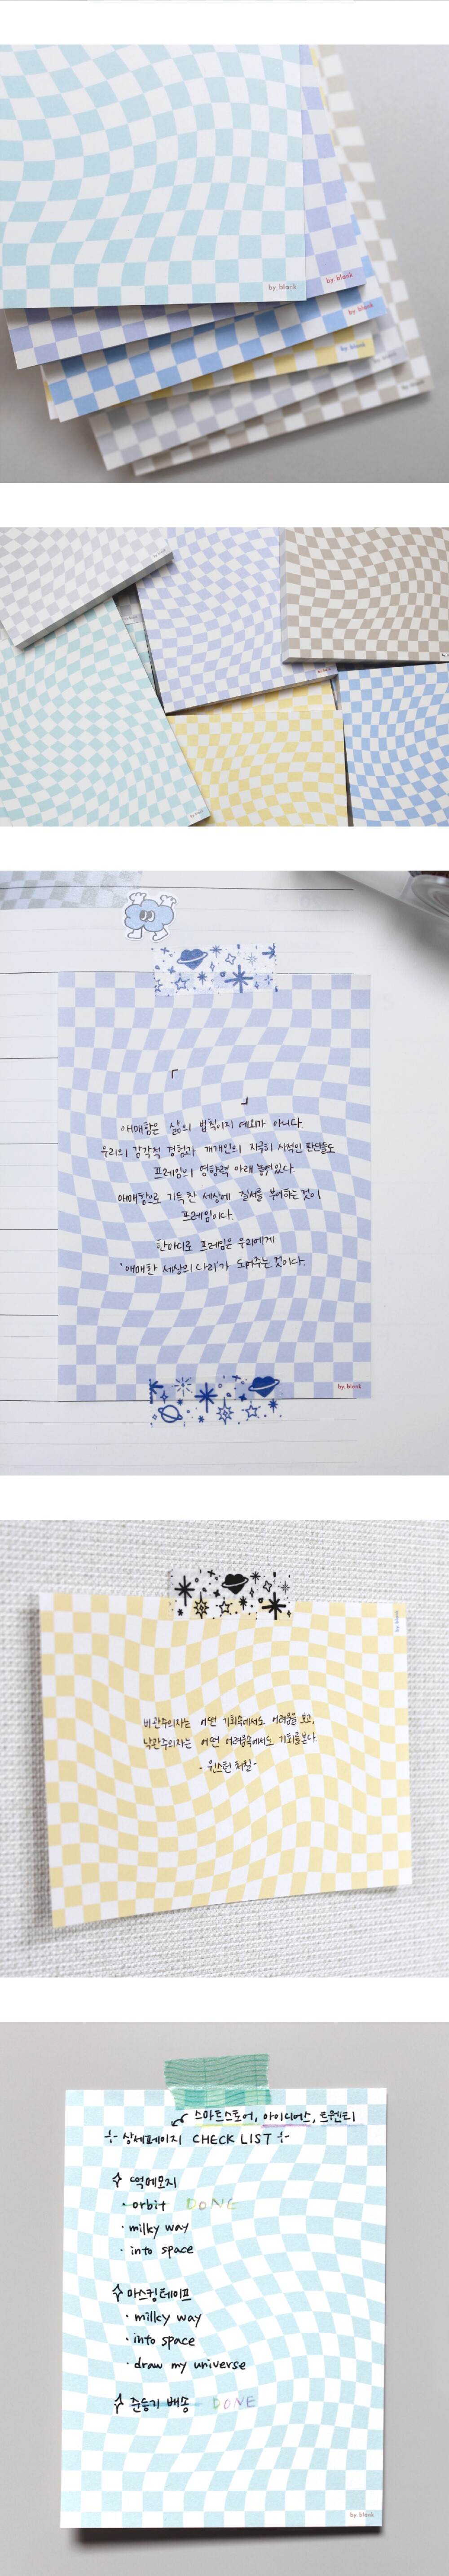 by. blank
by. blank
by. blank
by. blank
「
」
애매함은 삶의 법칙이지 예외가 아니다.
우리의 감각적 경험과 개개인의 지극히 사적인 판단들도
프레임의 영향력 아래 놓여있다.
애매함으로 가득 찬 세상에 질서를 부여하는 것이
프레임이다.
한마디로 프레임은 우리에게
'애매한 세상의 다리'가 되어주는 것이다.
by. blank
by. blank
비관주의자는 어떤 기회속에서도 어려움을 보고,
낙관주의자는 어떤 어려움속에서도 기회를 본다
- 윈스턴 처칠 -
스마트스토어, 아이디어스, 트웬티
상세페이지 CHECK LIST
떡메모지
· orbit DONE
· milky way
· into space
마스킹테이프
· milky way
· into space
· draw my universe
준등기 배송 DONE
by. blank